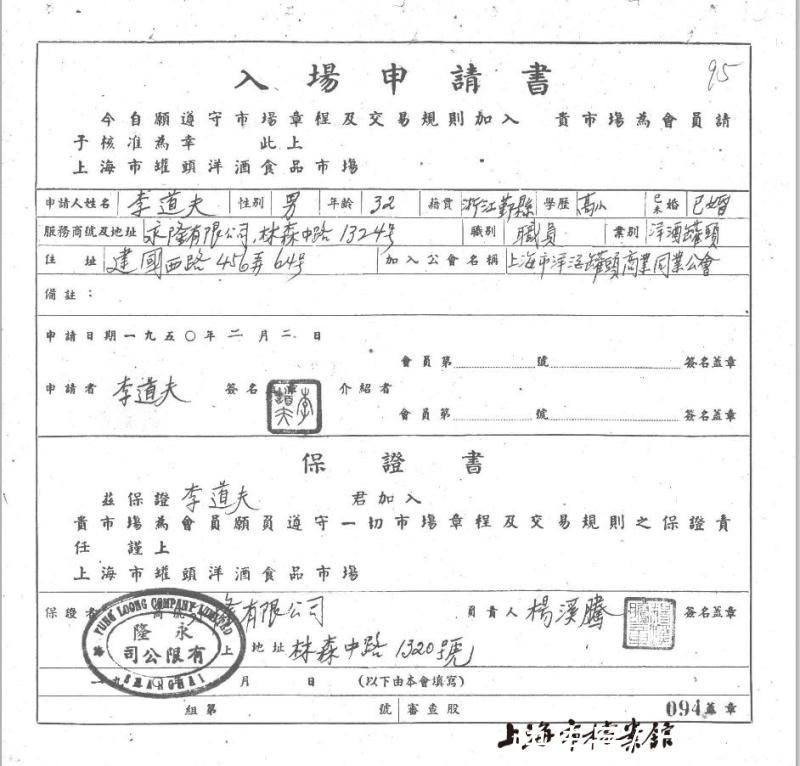 95
入場申請書
今自願遵守市場章程及交易規則加入 貴市場為會員請
予核准為幸 此上
上海市罐頭洋酒食品市場
申請人姓名 李道夫 性別 男 年齡 32 籍貫 浙江鄞縣 學歷 高小 已未婚 已婚
服務商號及地址 永隆有限公司,林森中路1324号 職別 職員 業別 洋酒罐頭
住址 建國西路456弄64号 加入公會名稱 上海市洋酒罐頭商業同業公會
備註：
申請日期一九五〇年二月二日
會員第 號 簽名蓋章
申請者 李道夫 簽名 章 介紹者
李道夫
會員第 號 簽名蓋章
保證書
茲保證 李道夫 君加入
貴市場為會員願負遵守一切市場章程及交易規則之保證責
任 謹上
上海市罐頭洋酒食品市場
保證者 有限公司 負責人 楊溪騰 簽名蓋章
YUNG LOONG COMPANY LIMITED
永隆
有限公司
SHANGHAI
地址 林森中路1320號
月 日 (以下由本會填寫)
組第 號 審查股 094 蓋章
上海市檔案館